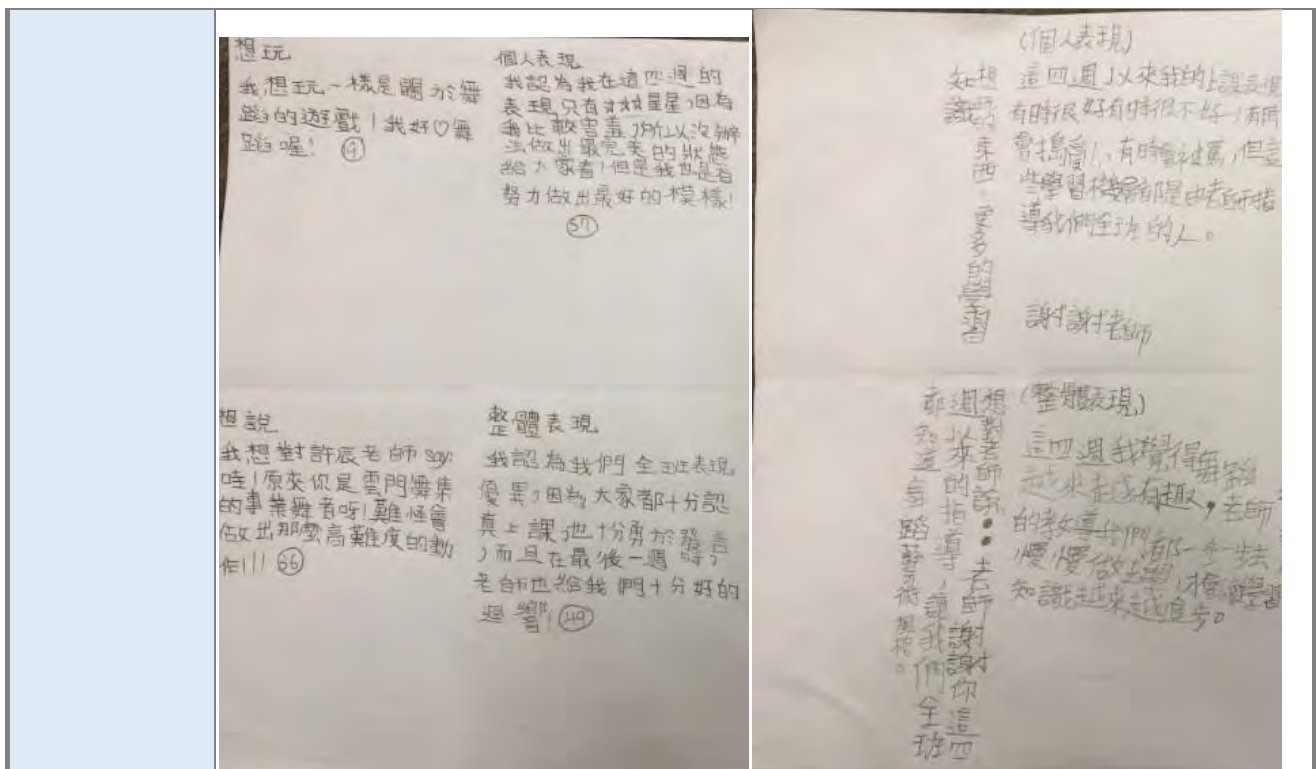 想玩
我想玩一樣是關於舞
蹈的遊戲！我好♡舞
蹈喔！ ⑨
個人表現
我認為我在這四週的
表現只有 星星，因為
我比較害羞，所以沒辦
法做出最完美的狀態
給大家看！但是我也是有
努力做出最好的模樣！
57
想說
我想對許辰老師 say:
哇！原來你是雲門舞集
的專業舞者呀！難怪會
做出那麼高難度的動
作!!! 66
整體表現
我認為我們全班表現
優異，因為大家都十分認
真上課，也十分勇於發言
，而且在最後一週時，
老師也給我們十分好的
迴響！ 49
(個人表現)
這四週以來我的上課表現
有時很好有時很不好，有時
會搗蛋！，有時會被罵，但這
些學習機會都是由老師指
導我們全班的人。
謝謝老師
想 東西。更多的學習
知識
(整體表現)
這四週我覺得舞蹈
越來越有趣，老師
的 導我們，都一步一步去
慢慢做 學習
知識越來越進步。
想對老師說：老師謝謝你這四
週以來的指導，讓我們全班
都知道舞蹈藝術